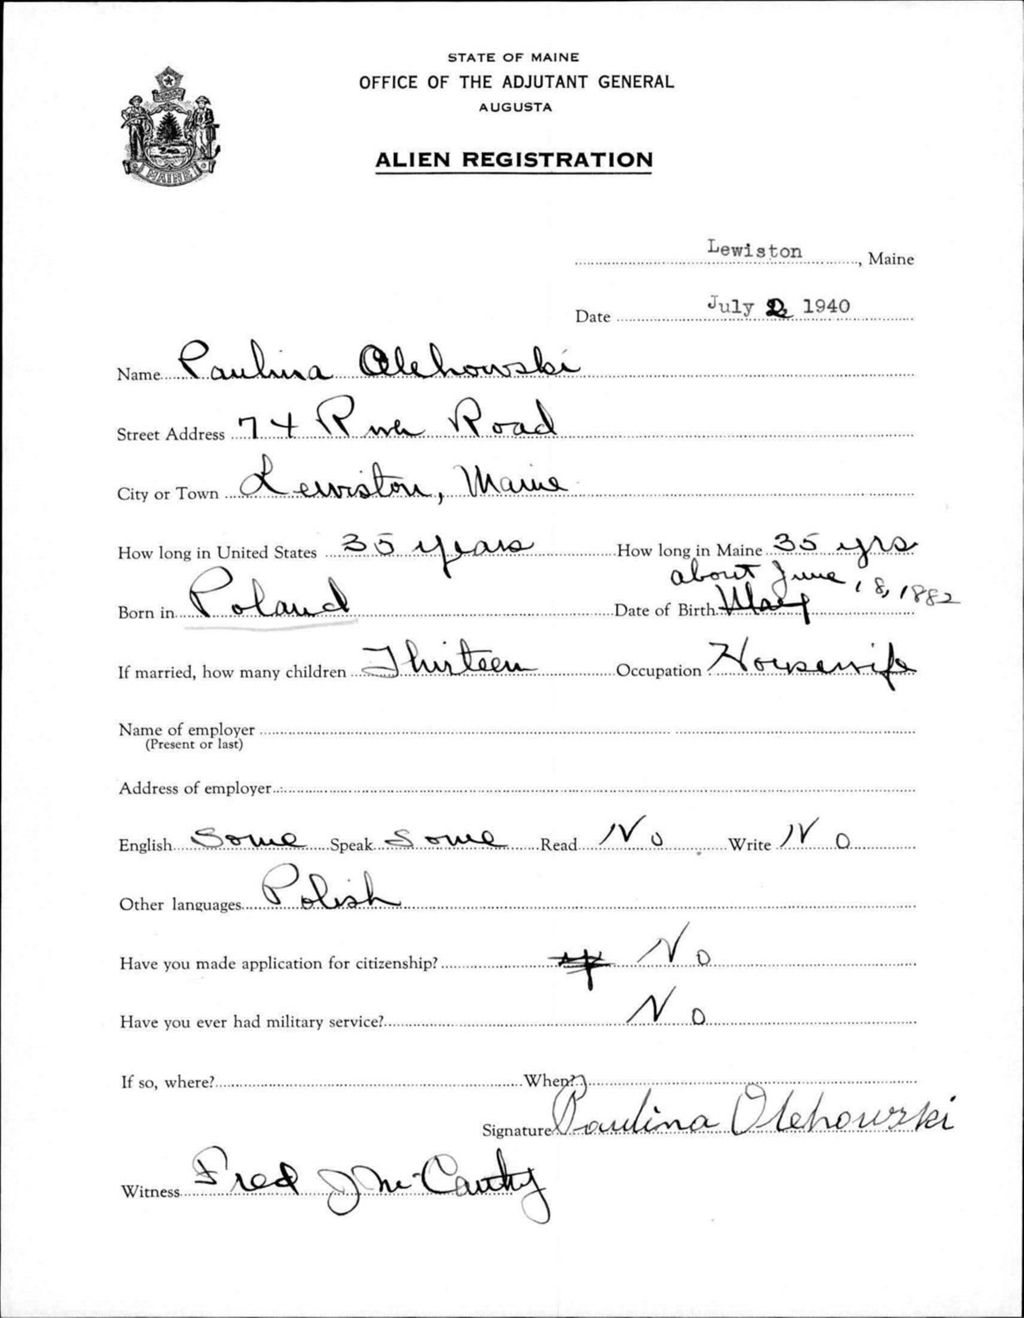 STATE OF MAINE
OFFICE OF THE ADJUTANT GENERAL
AUGUSTA
ALIEN REGISTRATION
MAINE
Lewiston, Maine
Date July 2, 1940
Name Paulina Olehowski
Street Address 74 River Road
City or Town Lewiston, Maine
How long in United States 35 years How long in Maine 35 yrs
about June 18, 1882
Born in Poland Date of Birth May
If married, how many children Thirteen Occupation Housewife
Name of employer
(Present or last)
Address of employer
English Some Speak Some Read No Write No
Other languages Polish
Have you made application for citizenship? No
Have you ever had military service? No
If so, where? When?
Signature Paulina Olehowski
Witness Fred J McCarthy